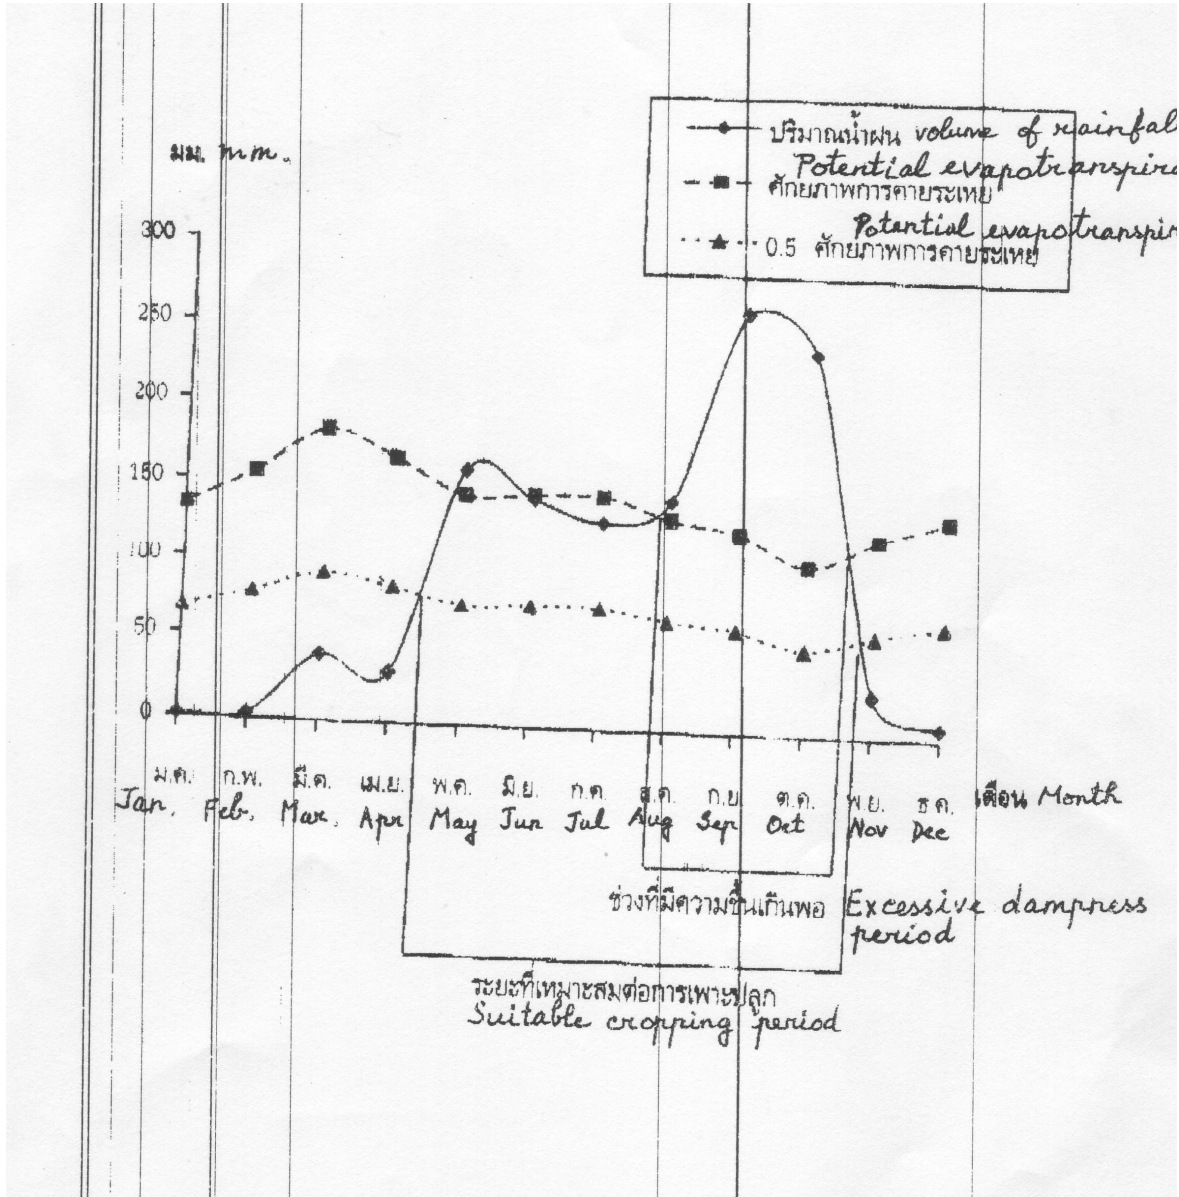 ปริมาณน้ำฝน volume of rainfal
Potential evapotranspira
ศักยภาพการคายระเหย
Potential evapotranspir
0.5 ศักยภาพการคายระเหย
มม. mm.
300
250
200
150
100
50
0
ม.ค. ก.พ. มี.ค. เม.ย. พ.ค. มิ.ย. ก.ค. ส.ค. ก.ย. ต.ค. พ.ย. ธ.ค. เดือน Month
Jan. Feb. Mar. Apr May Jun Jul Aug Sep Oct Nov Dec
ช่วงที่มีความชื้นเกินพอ Excessive dampness
period
ระยะที่เหมาะสมต่อการเพาะปลูก
Suitable cropping period